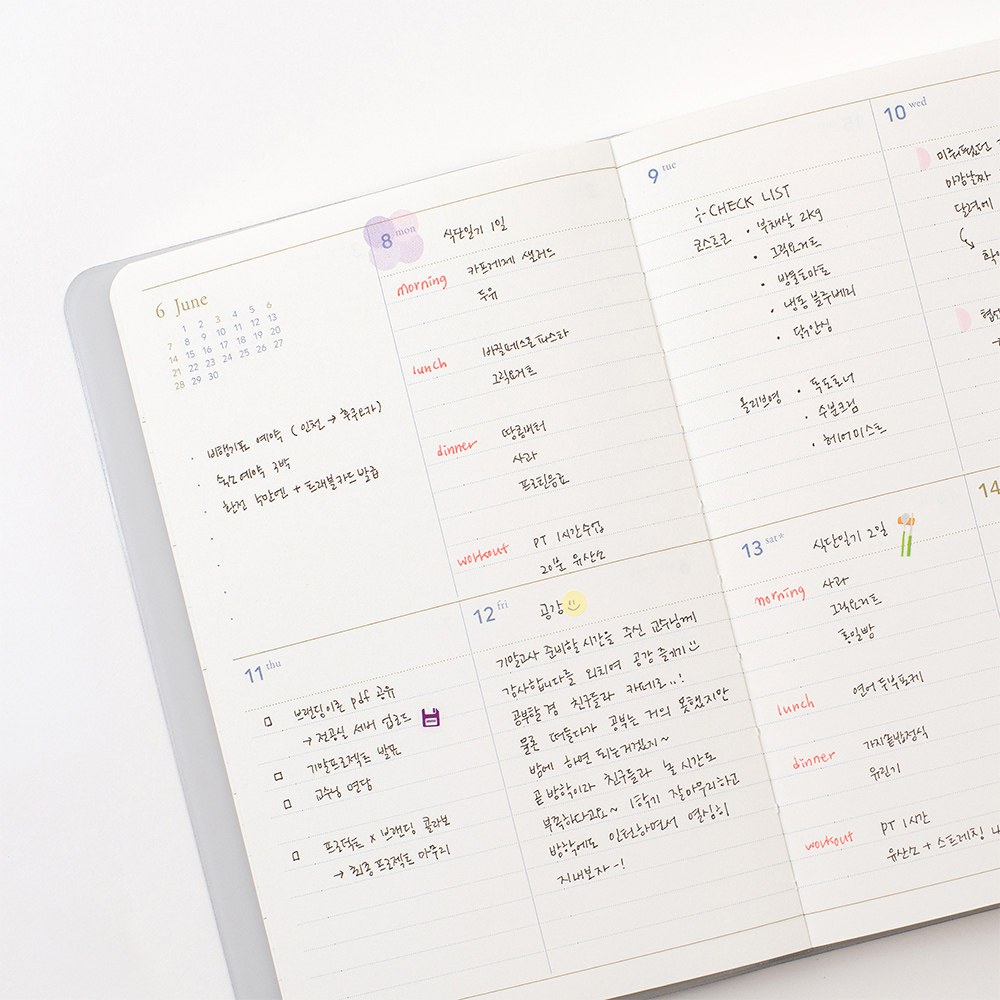 6 June
1 2 3 4 5 6
7 8 9 10 11 12 13
14 15 16 17 18 19 20
21 22 23 24 25 26 27
28 29 30
· 비행기표 예약 (인천 → 후쿠오카)
· 숙소예약 3박
· 환전 십만엔 + 트래블카드 발급
8 mon
식단일기 1일
morning 카프레제 샐러드
두유
lunch 바질페스토파스타
그릭요거트
dinner 땅콩버터
사과
프로틴음료
workout PT 1시간수업
20분 유산소
9 tue
CHECK LIST
코스트코 · 부채살 2kg
· 그릭요거트
· 방울토마토
· 냉동 블루베리
· 닭안심
올리브영 · 독도토너
· 수분크림
· 헤어미스트
10 wed
마감날짜
달력에
11 thu
브랜딩이론 pdf 공유
→ 전공실 서버 업로드
기말프로젝트 발표
교수님 면담
프로덕트 x 브랜딩 콜라보
→ 최종프로젝트 마무리
12 fri
공강
기말고사 준비할 시간을 주신 교수님께
감사합니다를 외치며 공강 즐기기
공부할 겸 친구들과 카페로..!
물론 떠들다가 공부는 거의 못했지만
밤에 하면 되는거겠지~
곧 방학이라 친구들과 놀 시간도
부족하다고요~ 1학기 잘마무리하고
방학에도 인턴하면서 열심히
지내보자~!
13 sat*
식단일기 2일
morning 사과
그릭요거트
통밀빵
lunch 연어두부포케
dinner 가지솥밥정식
유린기
workout PT 1시간
유산소 + 스트레칭
14